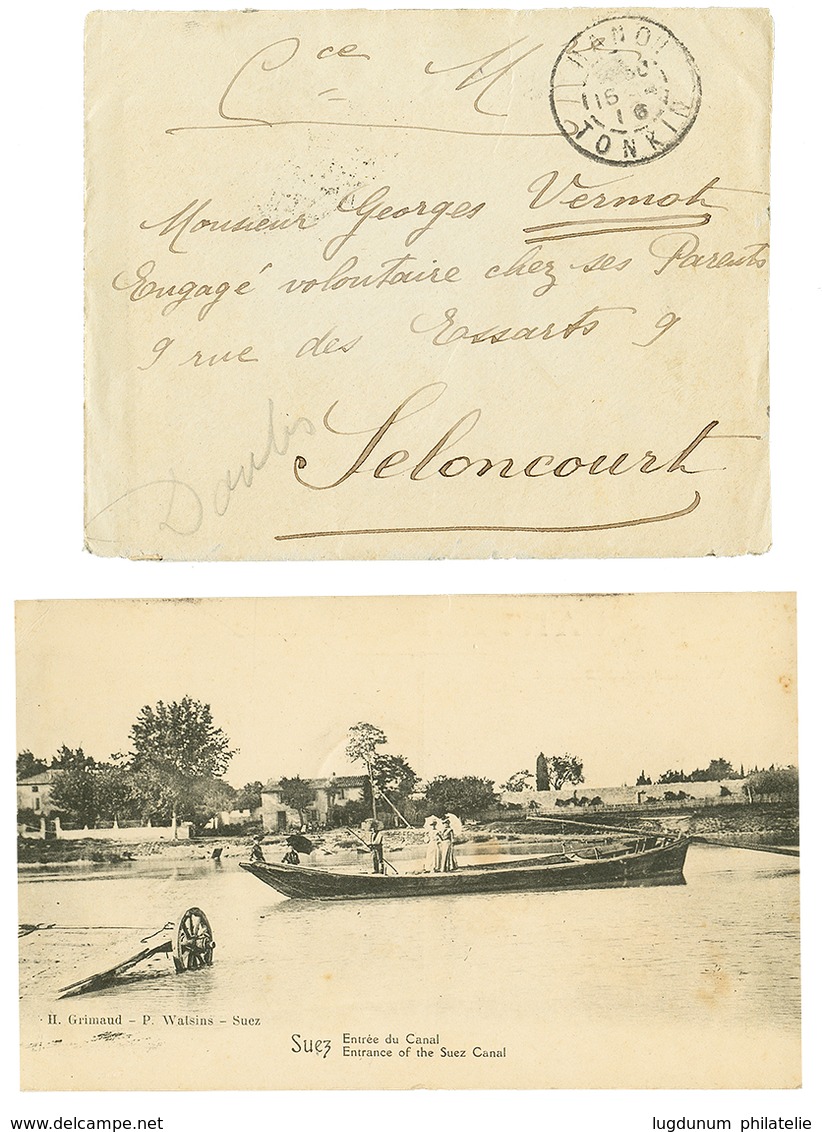 Cce M
HANOI
16
TONKIN
Monsieur Georges Vermot
Engagé volontaire chez ses Parents
9 rue des Essarts 9
Seloncourt
Doubs
H. Grimaud – P. Watsins – Suez
Suez Entrée du Canal
Entrance of the Suez Canal
www.delcampe.net
lugdunum philatelie